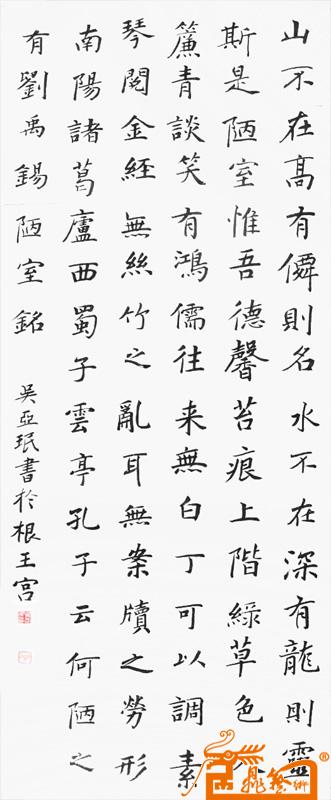 山不在髙有僊則名水不在深有龍則靈
斯是陋室惟吾德馨苔痕上階綠草色入
簾青談笑有鴻儒往来無白丁可以調素
琴閱金経無絲竹之亂耳無案牘之勞形
南陽諸葛廬西蜀子雲亭孔子云何陋之
有劉禹錫陋室銘
吳亞珉書於根王宮